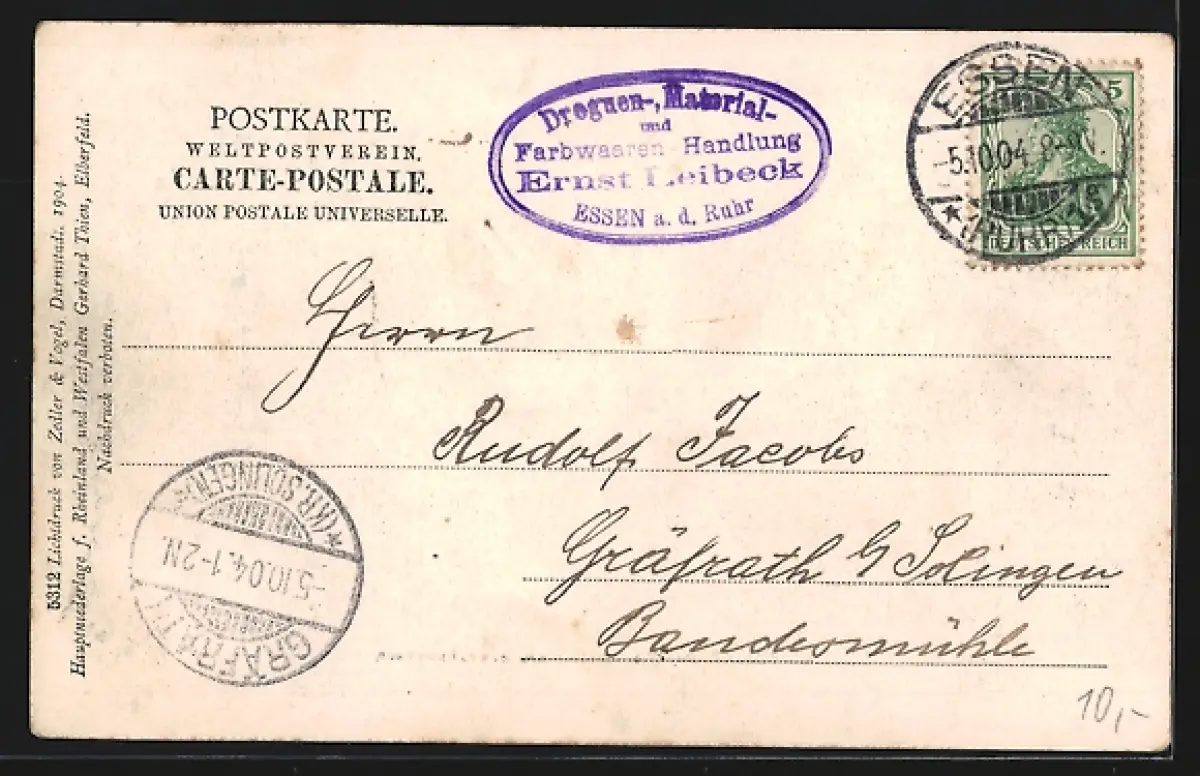 POSTKARTE.
WELTPOSTVEREIN.
CARTE-POSTALE.
UNION POSTALE UNIVERSELLE.
Droguen-, Material-
und
Farbwaaren-Handlung
Ernst Leibeck
ESSEN a. d. Ruhr
ESSEN
-5.10.04. 8-9N.
★ (RUHR)
5
DEUTSCHES REICH
Herrn
Rudolf Jacobs
Gräfrath b/ Solingen
Bandesmühle
★ (KR. SOLINGEN) ★
-5.10.04.1-2N.
GRÄFRATH
5312 Lichtdruck von Zedler & Vogel, Darmstadt. 1904.
Hauptniederlage f. Rheinland und Westfalen Gerhard Thien, Elberfeld.
Nachdruck verboten.
10,-